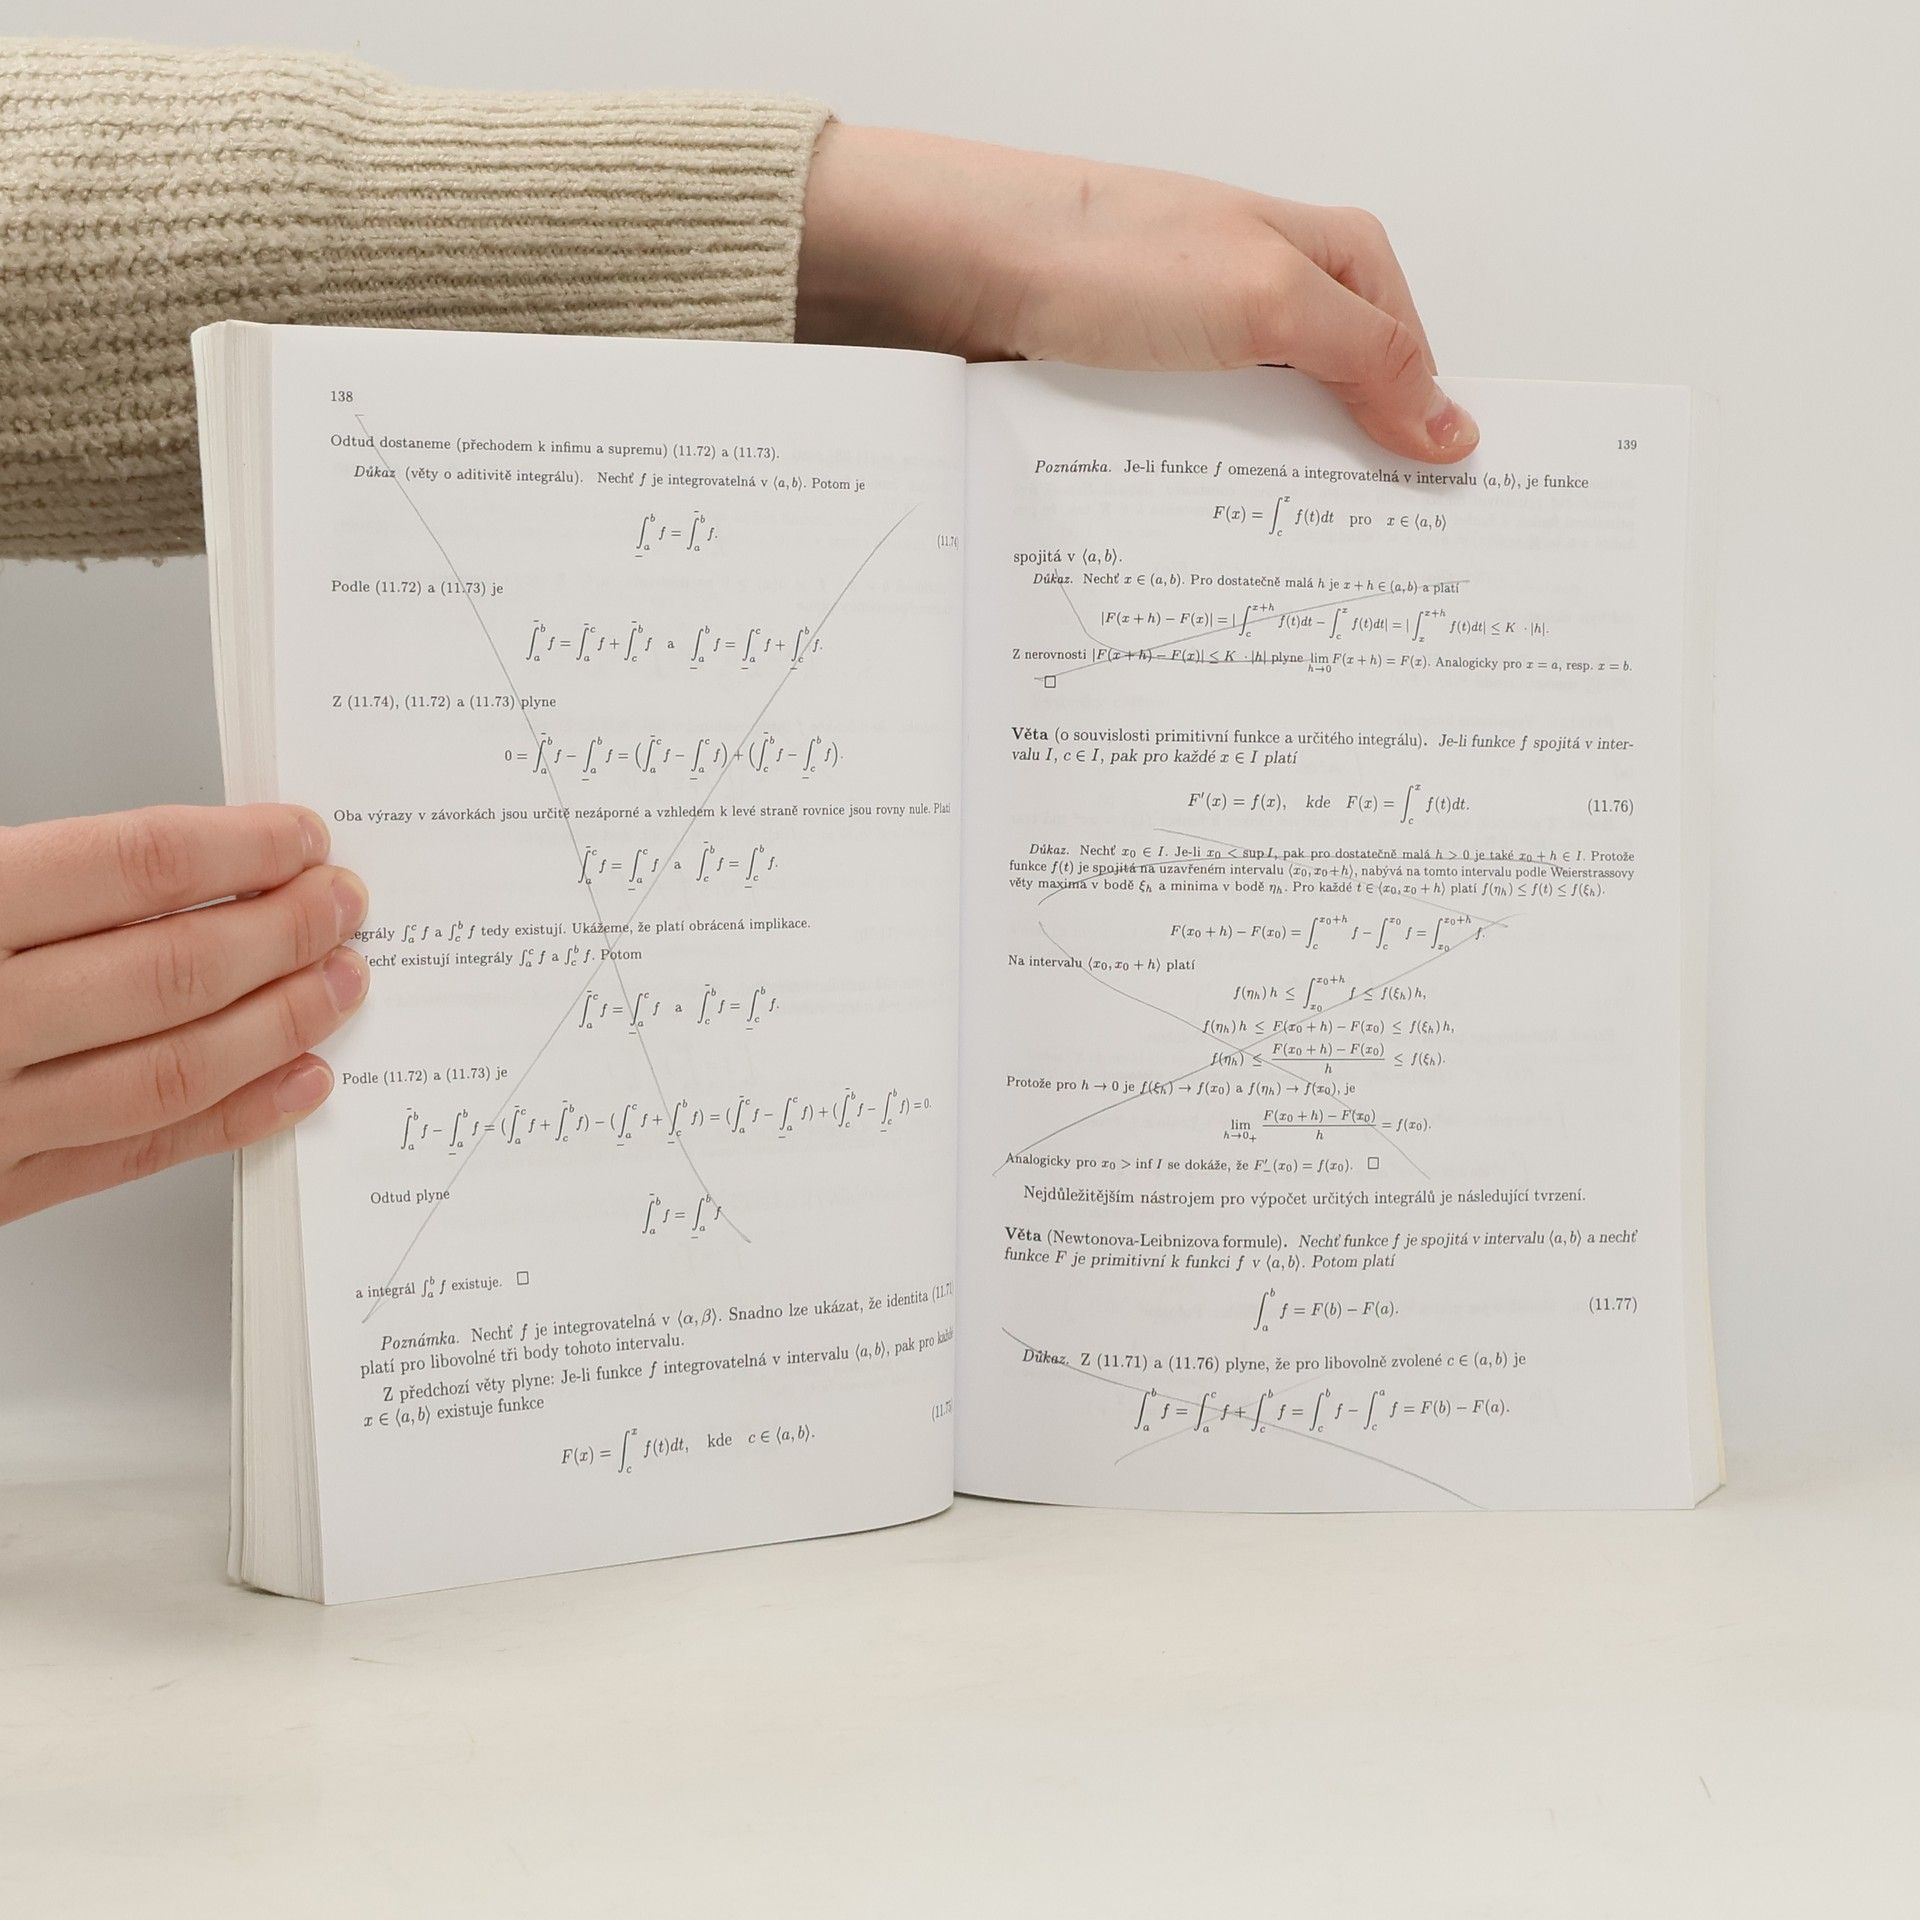 138
Odtud dostaneme (přechodem k infimu a supremu) (11.72) a (11.73).
Důkaz (věty o aditivitě integrálu). Nechť f je integrovatelná v ⟨a, b⟩. Potom je
∫̲_a^b f = ∫̄_a^b f.
Podle (11.72) a (11.73) je
∫̄_a^b f = ∫̄_a^c f + ∫̄_c^b f a ∫̲_a^b f = ∫̲_a^c f + ∫̲_c^b f.
Z (11.74), (11.72) a (11.73) plyne
0 = ∫̄_a^b f − ∫̲_a^b f = (∫̄_a^c f − ∫̲_a^c f) + (∫̄_c^b f − ∫̲_c^b f).
Oba výrazy v závorkách jsou určitě nezáporné a vzhledem k levé straně rovnice jsou rovny nule. Platí
∫̄_a^c f = ∫̲_a^c f a ∫̄_c^b f = ∫̲_c^b f.
∫_a^c f a ∫_c^b f tedy existují. Ukážeme, že platí obrácená implikace.
existují integrály ∫_a^c f a ∫_c^b f. Potom
∫̄_a^c f = ∫̲_a^c f a ∫̄_c^b f = ∫̲_c^b f.
Podle (11.72) a (11.73) je
∫̄_a^b f − ∫̲_a^b f = (∫̄_a^c f + ∫̄_c^b f) − (∫̲_a^c f + ∫̲_c^b f) = (∫̄_a^c f − ∫̲_a^c f) + (∫̄_c^b f − ∫̲_c^b f) = 0.
Odtud plyne
∫̄_a^b f = ∫̲_a^b f
a integrál ∫_a^b f existuje. □
Poznámka. Nechť f je integrovatelná v ⟨α, β⟩. Snadno lze ukázat, že identita
platí pro libovolné tři body tohoto intervalu.
Z předchozí věty plyne: Je-li funkce f integrovatelná v intervalu ⟨a, b⟩, pak pro každé
x ∈ ⟨a, b⟩ existuje funkce
F(x) = ∫_c^x f(t)dt, kde c ∈ ⟨a, b⟩.
139
Poznámka. Je-li funkce f omezená a integrovatelná v intervalu ⟨a, b⟩, je funkce
F(x) = ∫_c^x f(t)dt pro x ∈ ⟨a, b⟩
spojitá v ⟨a, b⟩.
Důkaz. Nechť x ∈ (a, b). Pro dostatečně malá h je x + h ∈ (a, b) a platí
|F(x + h) − F(x)| = |∫_c^{x+h} f(t)dt − ∫_c^x f(t)dt| = |∫_x^{x+h} f(t)dt| ≤ K · |h|.
Z nerovnosti |F(x + h) − F(x)| ≤ K · |h| plyne lim_{h→0} F(x + h) = F(x). Analogicky pro x = a, resp. x = b.
□
Věta (o souvislosti primitivní funkce a určitého integrálu). Je-li funkce f spojitá v inter-
valu I, c ∈ I, pak pro každé x ∈ I platí
F′(x) = f(x), kde F(x) = ∫_c^x f(t)dt. (11.76)
Důkaz. Nechť x₀ ∈ I. Je-li x₀ < sup I, pak pro dostatečně malá h > 0 je také x₀ + h ∈ I. Protože
funkce f(t) je spojitá na uzavřeném intervalu ⟨x₀, x₀+h⟩, nabývá na tomto intervalu podle Weierstrassovy
věty maxima v bodě ξₕ a minima v bodě ηₕ. Pro každé t ∈ ⟨x₀, x₀ + h⟩ platí f(ηₕ) ≤ f(t) ≤ f(ξₕ).
F(x₀ + h) − F(x₀) = ∫_c^{x₀+h} f − ∫_c^{x₀} f = ∫_{x₀}^{x₀+h} f.
Na intervalu ⟨x₀, x₀ + h⟩ platí
f(ηₕ) h ≤ ∫_{x₀}^{x₀+h} f ≤ f(ξₕ) h,
f(ηₕ) h ≤ F(x₀ + h) − F(x₀) ≤ f(ξₕ) h,
f(ηₕ) ≤ (F(x₀ + h) − F(x₀))/h ≤ f(ξₕ).
Protože pro h → 0 je f(ξₕ) → f(x₀) a f(ηₕ) → f(x₀), je
lim_{h→0₊} (F(x₀ + h) − F(x₀))/h = f(x₀).
Analogicky pro x₀ > inf I se dokáže, že F′₋(x₀) = f(x₀). □
Nejdůležitějším nástrojem pro výpočet určitých integrálů je následující tvrzení.
Věta (Newtonova-Leibnizova formule). Nechť funkce f je spojitá v intervalu ⟨a, b⟩ a nechť
funkce F je primitivní k funkci f v ⟨a, b⟩. Potom platí
∫_a^b f = F(b) − F(a). (11.77)
Důkaz. Z (11.71) a (11.76) plyne, že pro libovolně zvolené c ∈ (a, b) je
∫_a^b f = ∫_a^c f + ∫_c^b f = ∫_c^b f − ∫_c^a f = F(b) − F(a).